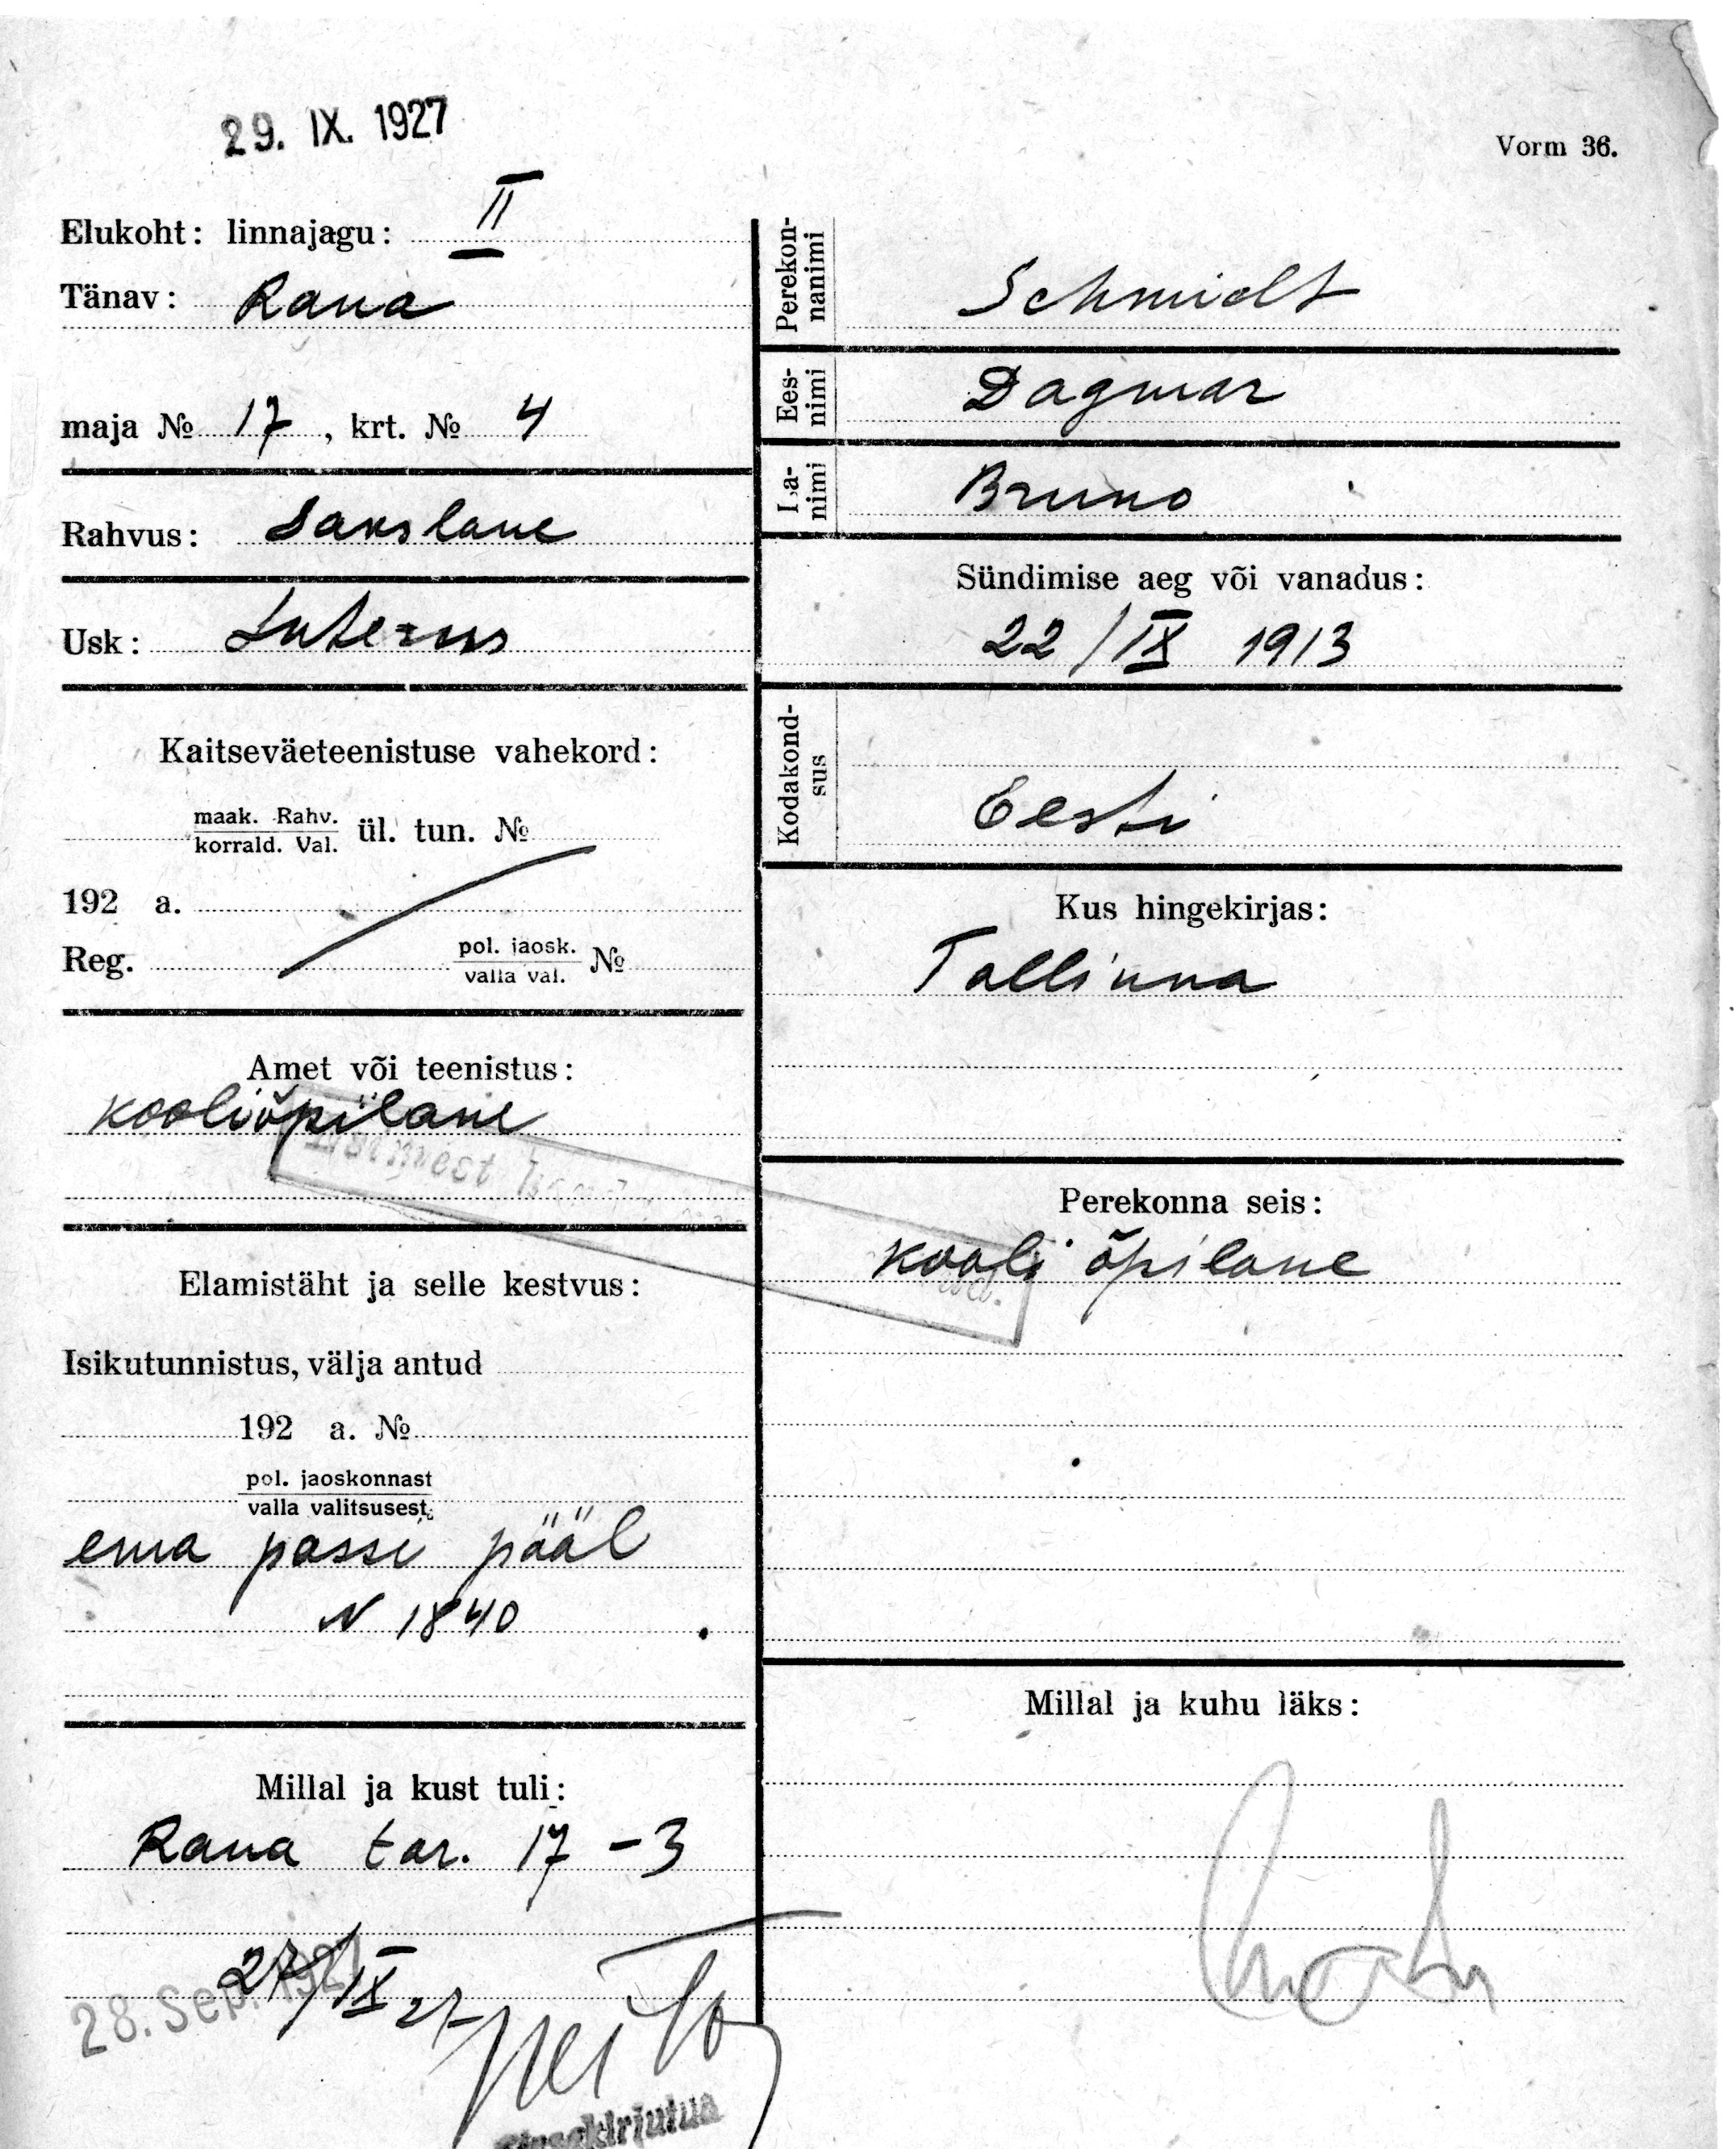 29. IX. 1927
Vorm 36.
Elukoht: linnajagu: II
Tänav: Raua
maja № 17, krt. № 4
Rahvus: Sakslane
Usk: Luterus
Kaitseväeteenistuse vahekord:
maak. Rahv.
korrald. Val. ül. tun. №
192 a.
Reg. pol. jaosk.
valla val. №
Amet või teenistus:
kooliõpilane
Elamistäht ja selle kestvus:
Isikutunnistus, välja antud
192 a. №
pol. jaoskonnast
valla valitsusest
ema passi pääl
N 1840
Millal ja kust tuli:
Raua tar. 17 - 3
27/IX 27
28. Sep. 1927
Perekon-
nanimi
Schmidt
Ees-
nimi
Dagmar
Isa-
nimi
Bruno
Sündimise aeg või vanadus:
22/IX 1913
Kodakond-
sus
Eesti
Kus hingekirjas:
Tallinna
Perekonna seis:
kooli õpilane
Millal ja kuhu läks: